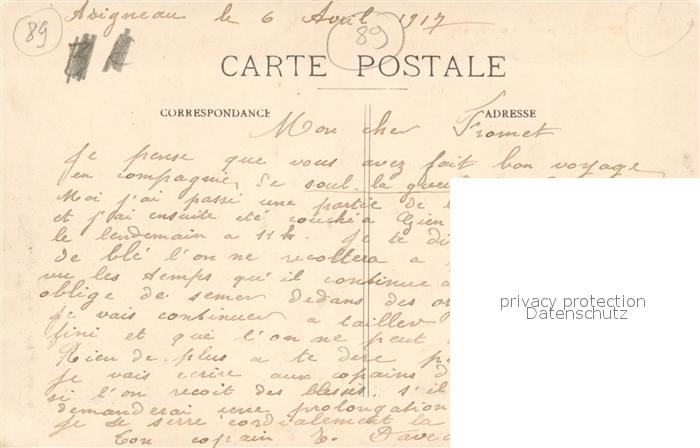 Avigneau le 6 Avril 1917
89
89
CARTE POSTALE
CORRESPONDANCE
ADRESSE
Mon cher Fromet
Je pense que vous avez fait bon voyage
en compagnie de soul la gueule
Moi j'ai passé une partie de
et j'ai ensuite été couché a Gien
le lendemain a 11 h. Je te di
de blé l'on ne recollera a
vu les temps qu'il continue
oblige de semer dedans des or
je vais continuer a tailler
fini et que l'on ne peut
Rien de plus a te dere
je vais ecrire aux copains d
si l'on recoit des blessés s'il
demanderai une prolongation
Je te serre cordialement la
Ton copain
privacy protection
Datenschutz